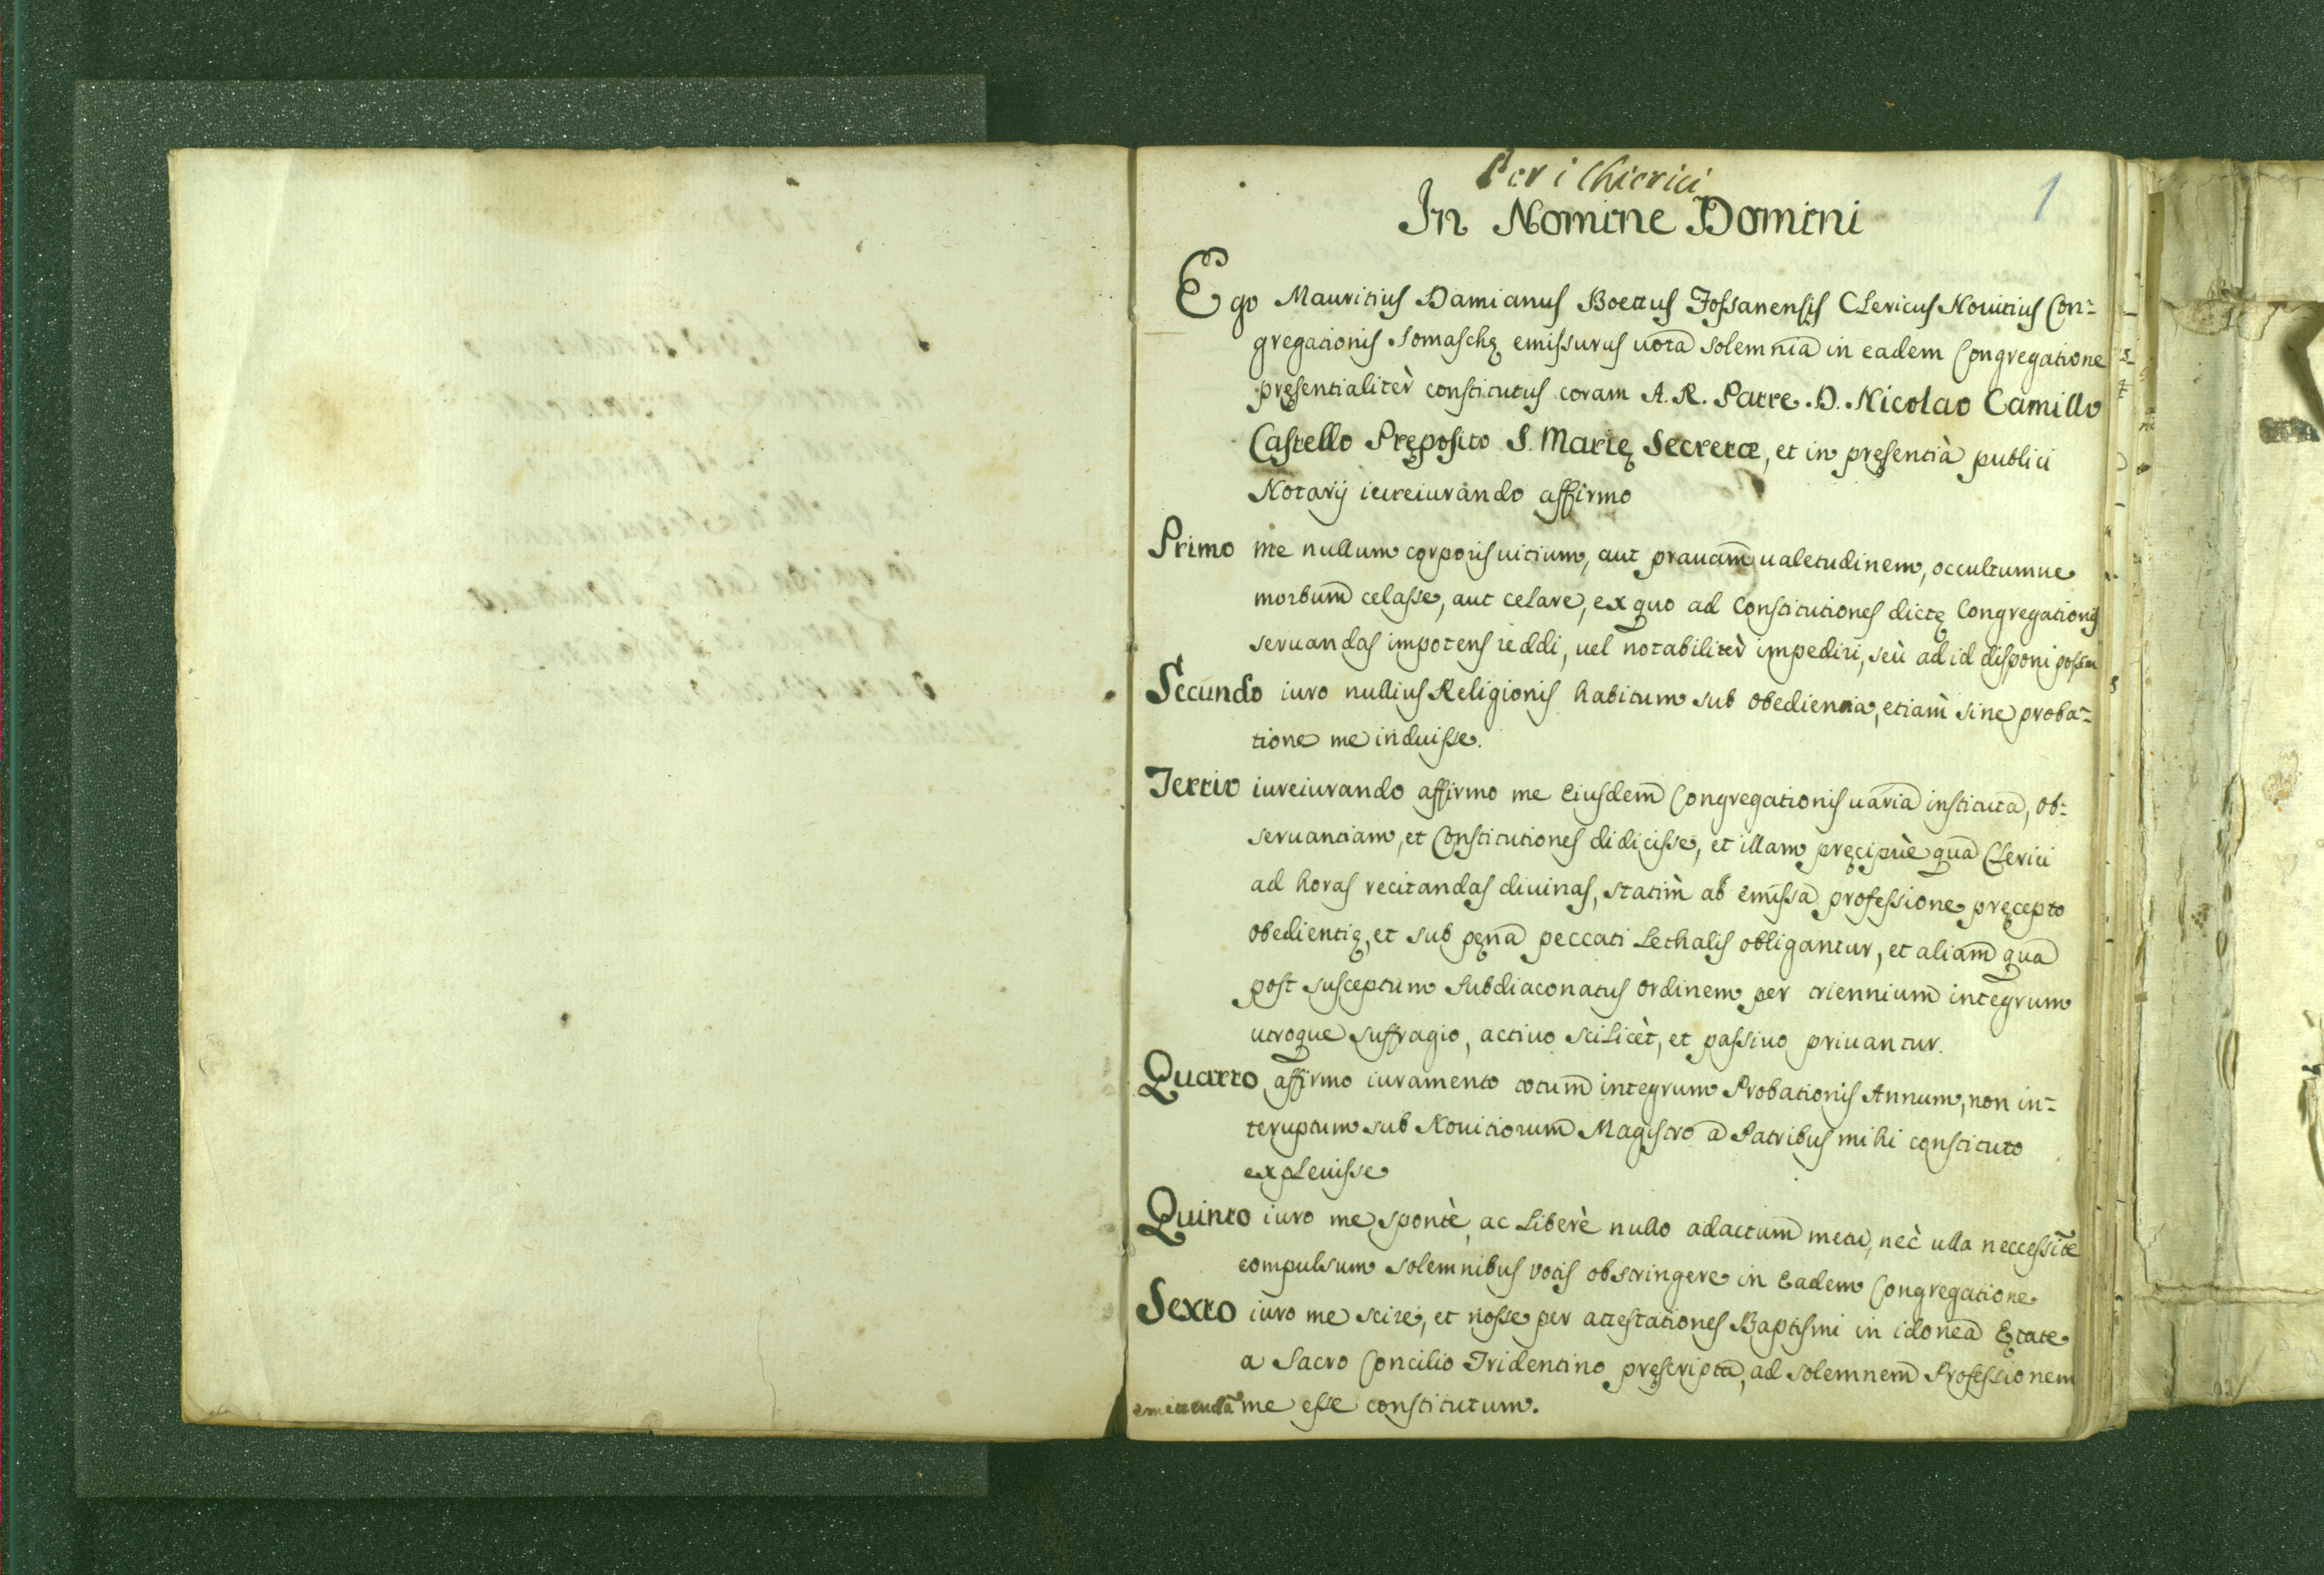 Per i Chierici
1
In Nomine Domini
Ego Mauritius Damianus Boettus Fossanensis Clericus Nouitius Con-
gregationis Somaschę emissurus uota solemnia in eadem Congregatione
pręsentialitèr constitutus coram A. R. Patre. D. Nicolao Camillo
Castello Pręposito S. Marię Secretæ, et in pręsentià publici
Notarij iureiurando affirmo
Primo me nullum corporis uitium, aut prauam ualetudinem, occultumue
morbum celasse, aut celare, ex quo ad Constitutiones dictę Congregationis
seruandas impotens reddi, uel notabilitèr impediri, seù ad id disponi possim
Secundo iuro nullius Religionis habitum sub obedientia, etiam sine proba-
tione me induisse.
Tertio iureiurando affirmo me Eiusdem Congregationis uaria instituta, ob-
seruantiam, et Constitutiones didicisse, et illam pręcipuè qua Clerici
ad horas recitandas diuinas, statìm ab emissa professione pręcepto
obedientię, et sub pęna peccati Lethalis obligantur, et aliam qua
post susceptum Subdiaconatus ordinem per triennium integrum
utroque suffragio, actiuo sciLicèt, et passiuo priuantur.
Quarto affirmo iuramento totum integrum Probationis Annum, non in-
teruptum sub Nouitiorum Magistro a Patribus mihi constituto
expleuisse
Quinto iuro me spontè, ac Liberè nullo adactum metu, nec ulla neccessit̃e
compulsum solemnibus votis obstringere in Eadem Congregatione
Sexto iuro me scire, et nosse per attestationes Baptismi in idonea Ętate
a Sacro Concilio Tridentino pręscripta, ad solemnem Professionem
emittendã me esse constitutum.